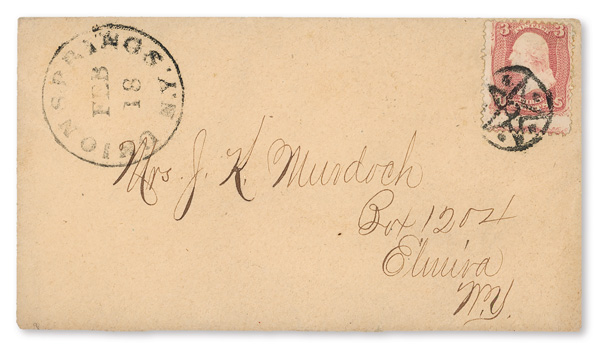 UNION SPRINGS N.Y.
FEB
18
3 3
Mrs. J. K. Murdoch
Box 1204
Elmira
N.Y.